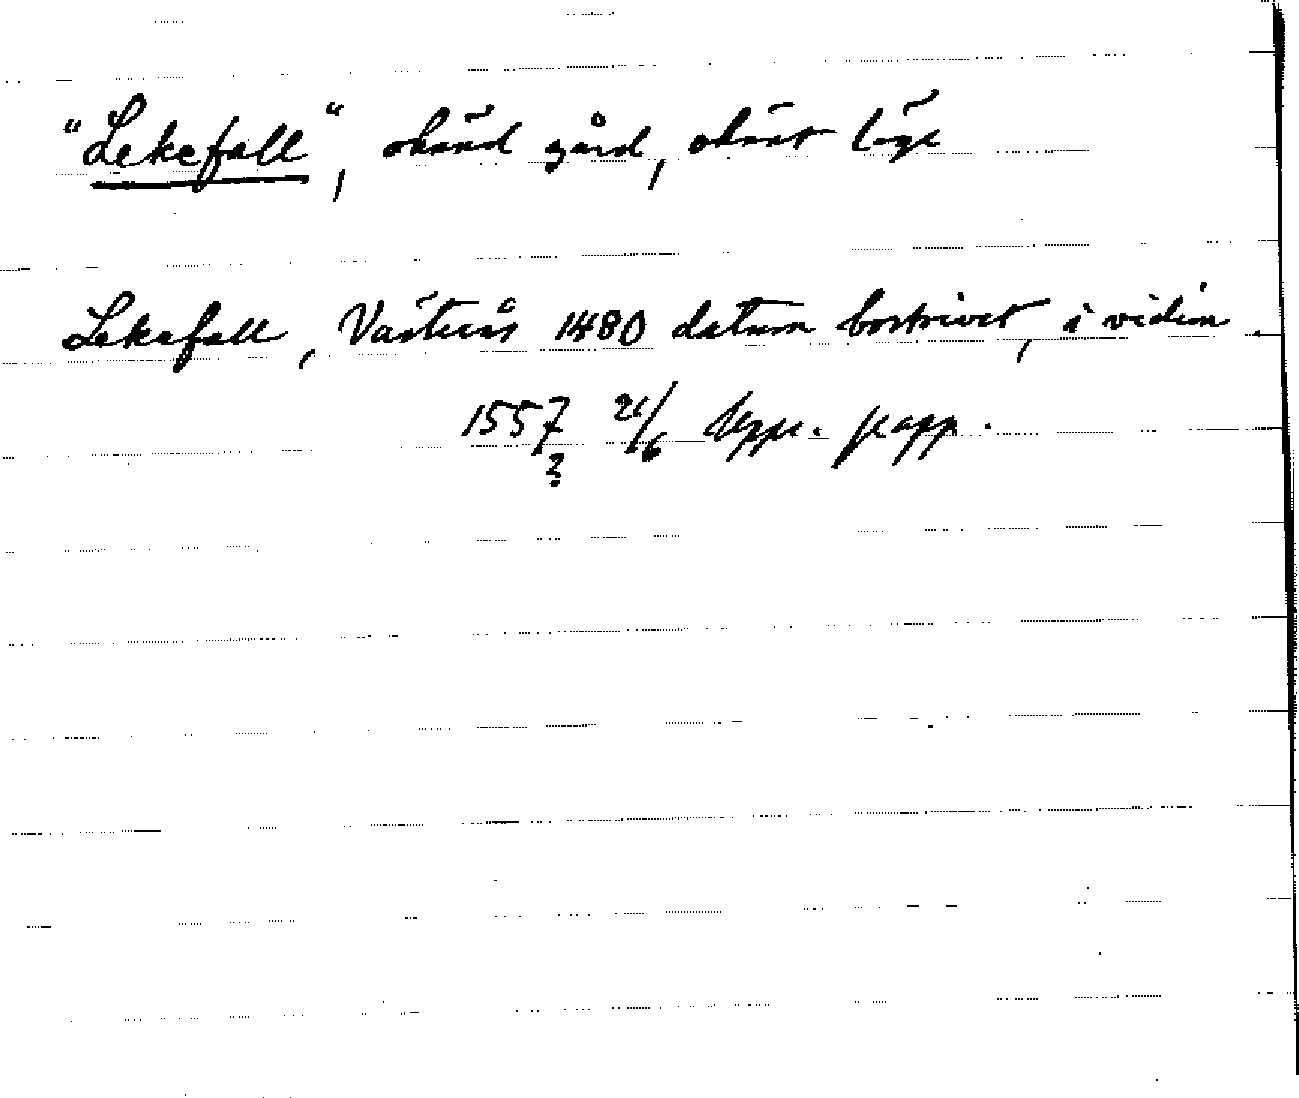 "Lekefall", okänd gård, okänt läge
Lekefall, Västerås 1480 datum bortrivet, i vidim.
1557 21/6 Uppl. papp.
?